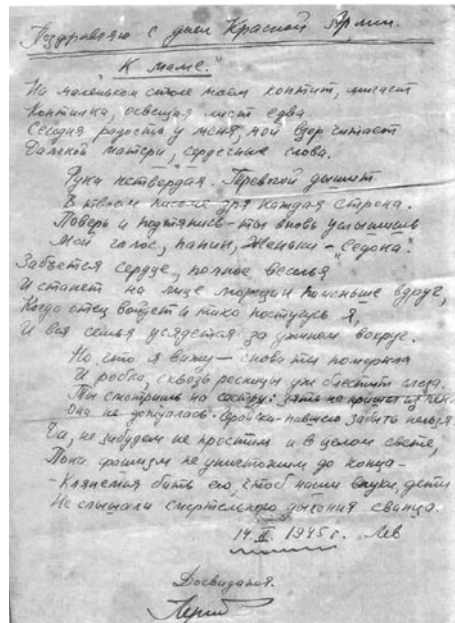 Поздравляю с днем Красной Армии.
"К маме."
На маленьком столе моем коптит, мигает
Коптилка, освещая лист едва
Сегодня радость у меня, мой взор читает
Далекой матери, сердечные слова.
Рука нетвердая. Тревогой дышит
В твоем письме зря каждая строка.
Поверь и подтянись - ты вновь услышишь
Мой голос, папин, Женьки - "Седона".
Забьется сердце, полное веселья
И станет на лице морщин поменьше вдруг,
Когда отец войдет и тихо постучусь я,
И вся семья усядется за ужином вокруг.
Но, что я вижу - снова ты померкла
И робко, сквозь ресницы уж блестит слеза.
Ты смотришь на сестру: зять не пришел
Она не дождалась. павшего забыть нельзя.
Да, не забудем не простим и в целом свете,
Пока фашизм не уничтожим до конца -
- Клянемся бить его, чтоб наши внуки, дети
Не слышали смертельного дыхания свинца.
14.II. 1945 г. Лев
Досвидания.